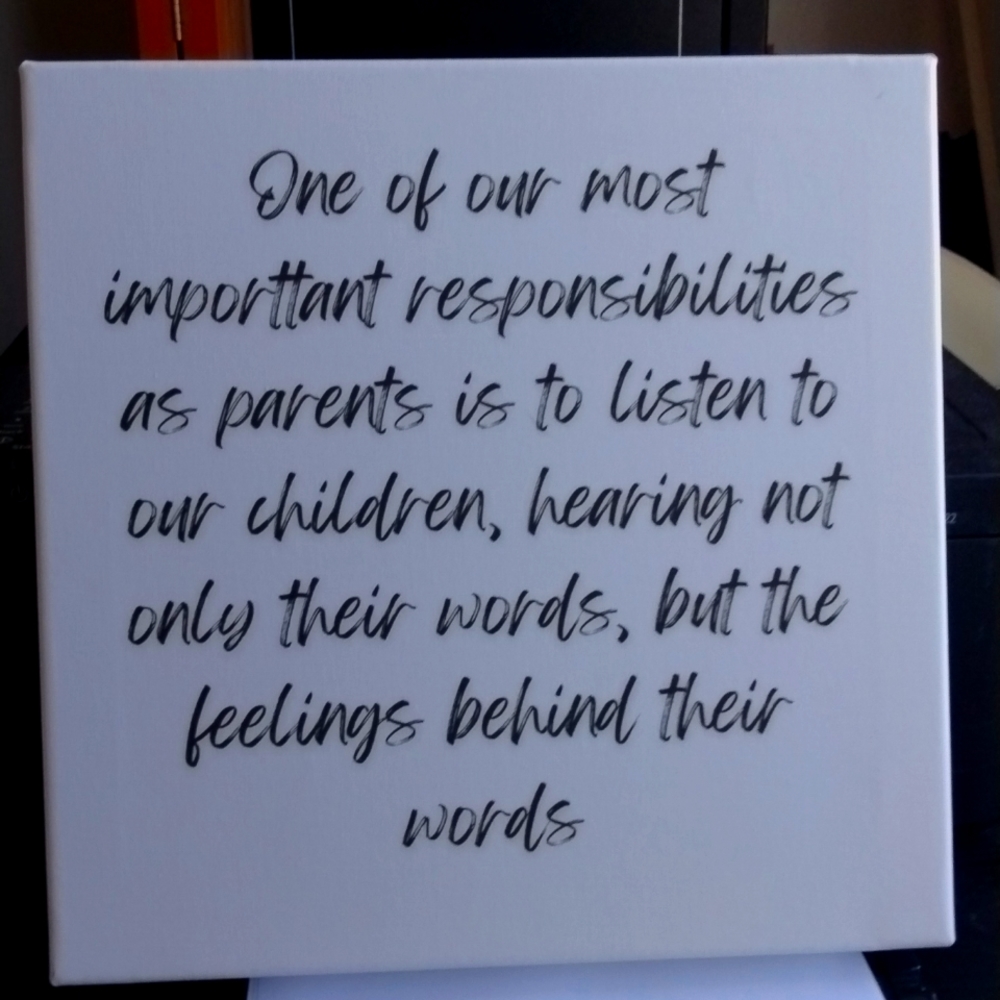 One of our most
importtant responsibilities
as parents is to listen to
our children, hearing not
only their words, but the
feelings behind their
words